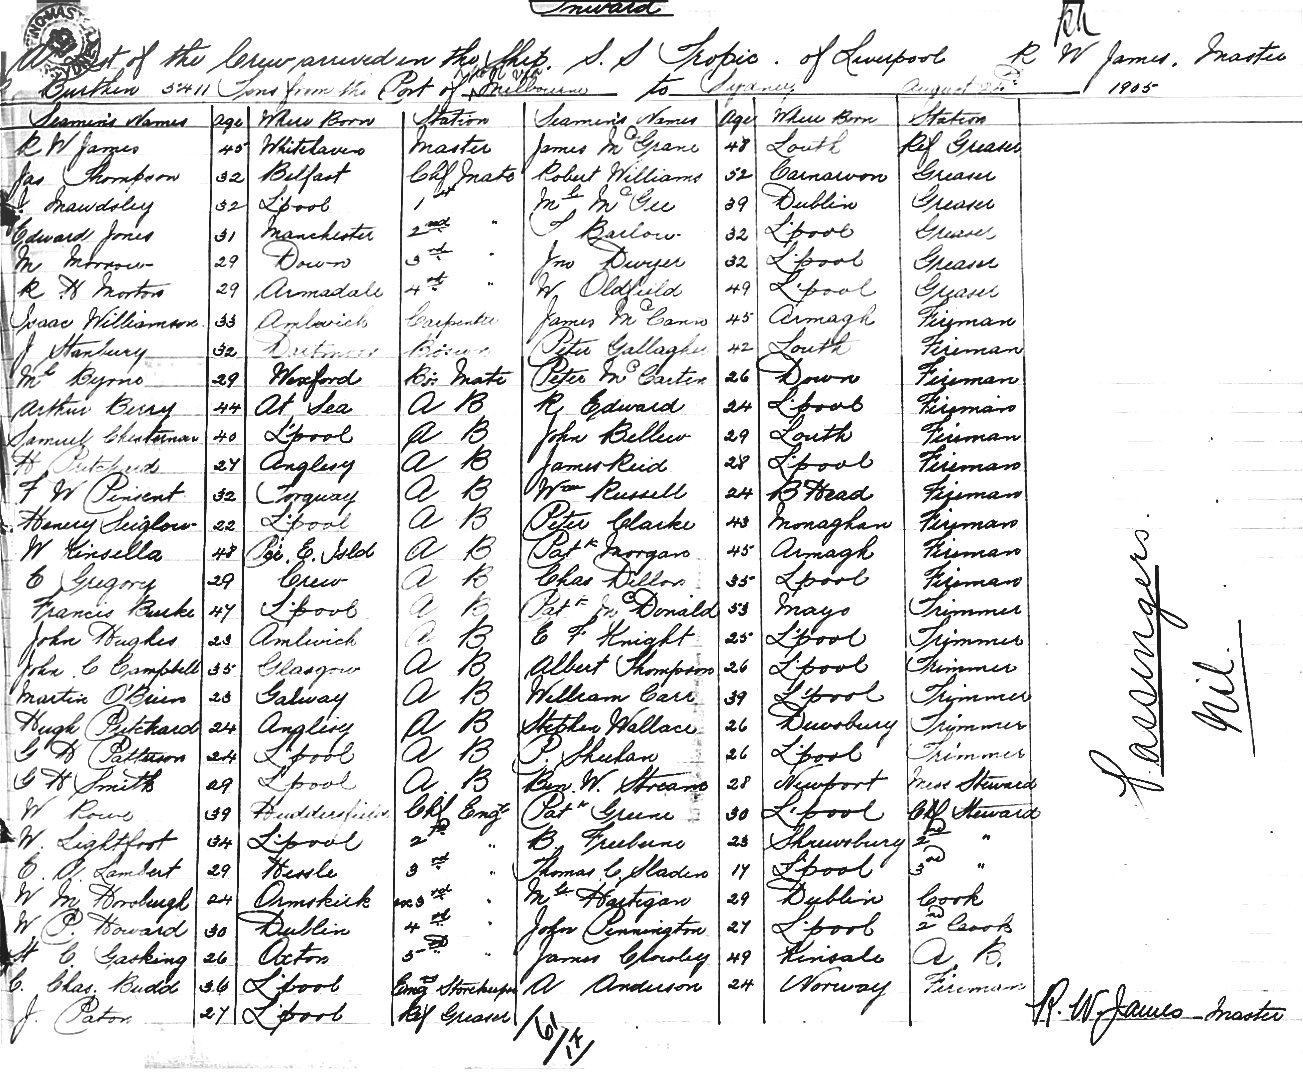 Inward
A List of the Crew arrived in the Ship S. S Tropic. of Liverpool R W James, Master
Burthen 5411 Tons from the Port of Melbourne to Sydney August 1905
Seamens Names Age Where Born Station Seamens Names Age Where Born Station
R W James 45 Whitehaven Master James McGrane 48 Louth Ref Greaser
Jas Thompson 32 Belfast Chf Mate Robert Williams 52 Carnarvon Greaser
Mawdsley 32 L'pool 1st " Ml McGee 39 Dublin Greaser
Edward Jones 31 Manchester 2nd " T Barlow 32 L'pool Greaser
M Morrow 29 Down 3rd " Jno Dwyer 32 L'pool Greaser
R H Morton 29 Armadale 4th " W Oldfield 49 L'pool Greaser
Isaac Williamson 33 Amlwich Carpenter James McCann 45 Armagh Fireman
J Stanbury 32 Bosun Peter Gallagher 42 Louth Fireman
Ml Byrne 29 Wexford Bos Mate Peter McCarten 26 Down Fireman
Arthur Berry 44 At Sea A B R Edward 24 L'pool Fireman
Samuel Chesterman 40 L'pool A B John Bellew 29 Louth Fireman
H Pritchard 27 Anglesy A B James Reid 28 L'pool Fireman
F W Pinsent 32 Torquay A B Wm Russell 24 B Head Fireman
Henery Seiglow 22 L'pool A B Peter Clarke 43 Monaghan Fireman
W Kinsella 48 Pr. E. Isld A B Patk Morgan 45 Armagh Fireman
C Gregory 29 Crew A B Chas Dillon 35 L'pool Fireman
Francis Burke 47 L'pool A B Patk McDonald 53 Mayo Trimmer
John Hughes 23 Amlwich A B E F Knight 25 L'pool Trimmer
John C Campbell 35 Glasgow A B Albert Thompson 26 L'pool Trimmer
Martin O'Brien 23 Galway A B William Carr 39 L'pool Trimmer
Hugh Pritchard 24 Anglesy A B Stephen Wallace 26 Dewsbury Trimmer
G H Patterson 24 L'pool A B P. Sheehan 26 L'pool Trimmer
G H Smith 29 L'pool A. B Ben. W. Stroane 28 Newport Mess Steward
W Rowe 39 Huddersfield Chf Engr Patk Greene 30 L'pool Chf Steward
W. Lightfoot 34 L'pool 2nd " B Freebune 23 Shrewsbury 2nd "
E. A. Lambert 29 Hessle 3rd " Thomas C Sladen 17 L'pool 3rd "
W M Horoburgh 24 Ormskirk 3rd " Ml Hartigan 29 Dublin Cook
W P. Howard 30 Dublin 4th " John Pennington 27 L'pool 2nd Cook
H C Gasking 26 Oxton 5th " James Crowley 49 Kinsale A B.
C. Chas. Budd 36 L'pool Engrs Storekeeper A Anderson 24 Norway Fireman
J. Paton 27 L'pool Ref Greaser
Passengers
Nil.
R. W. James Master